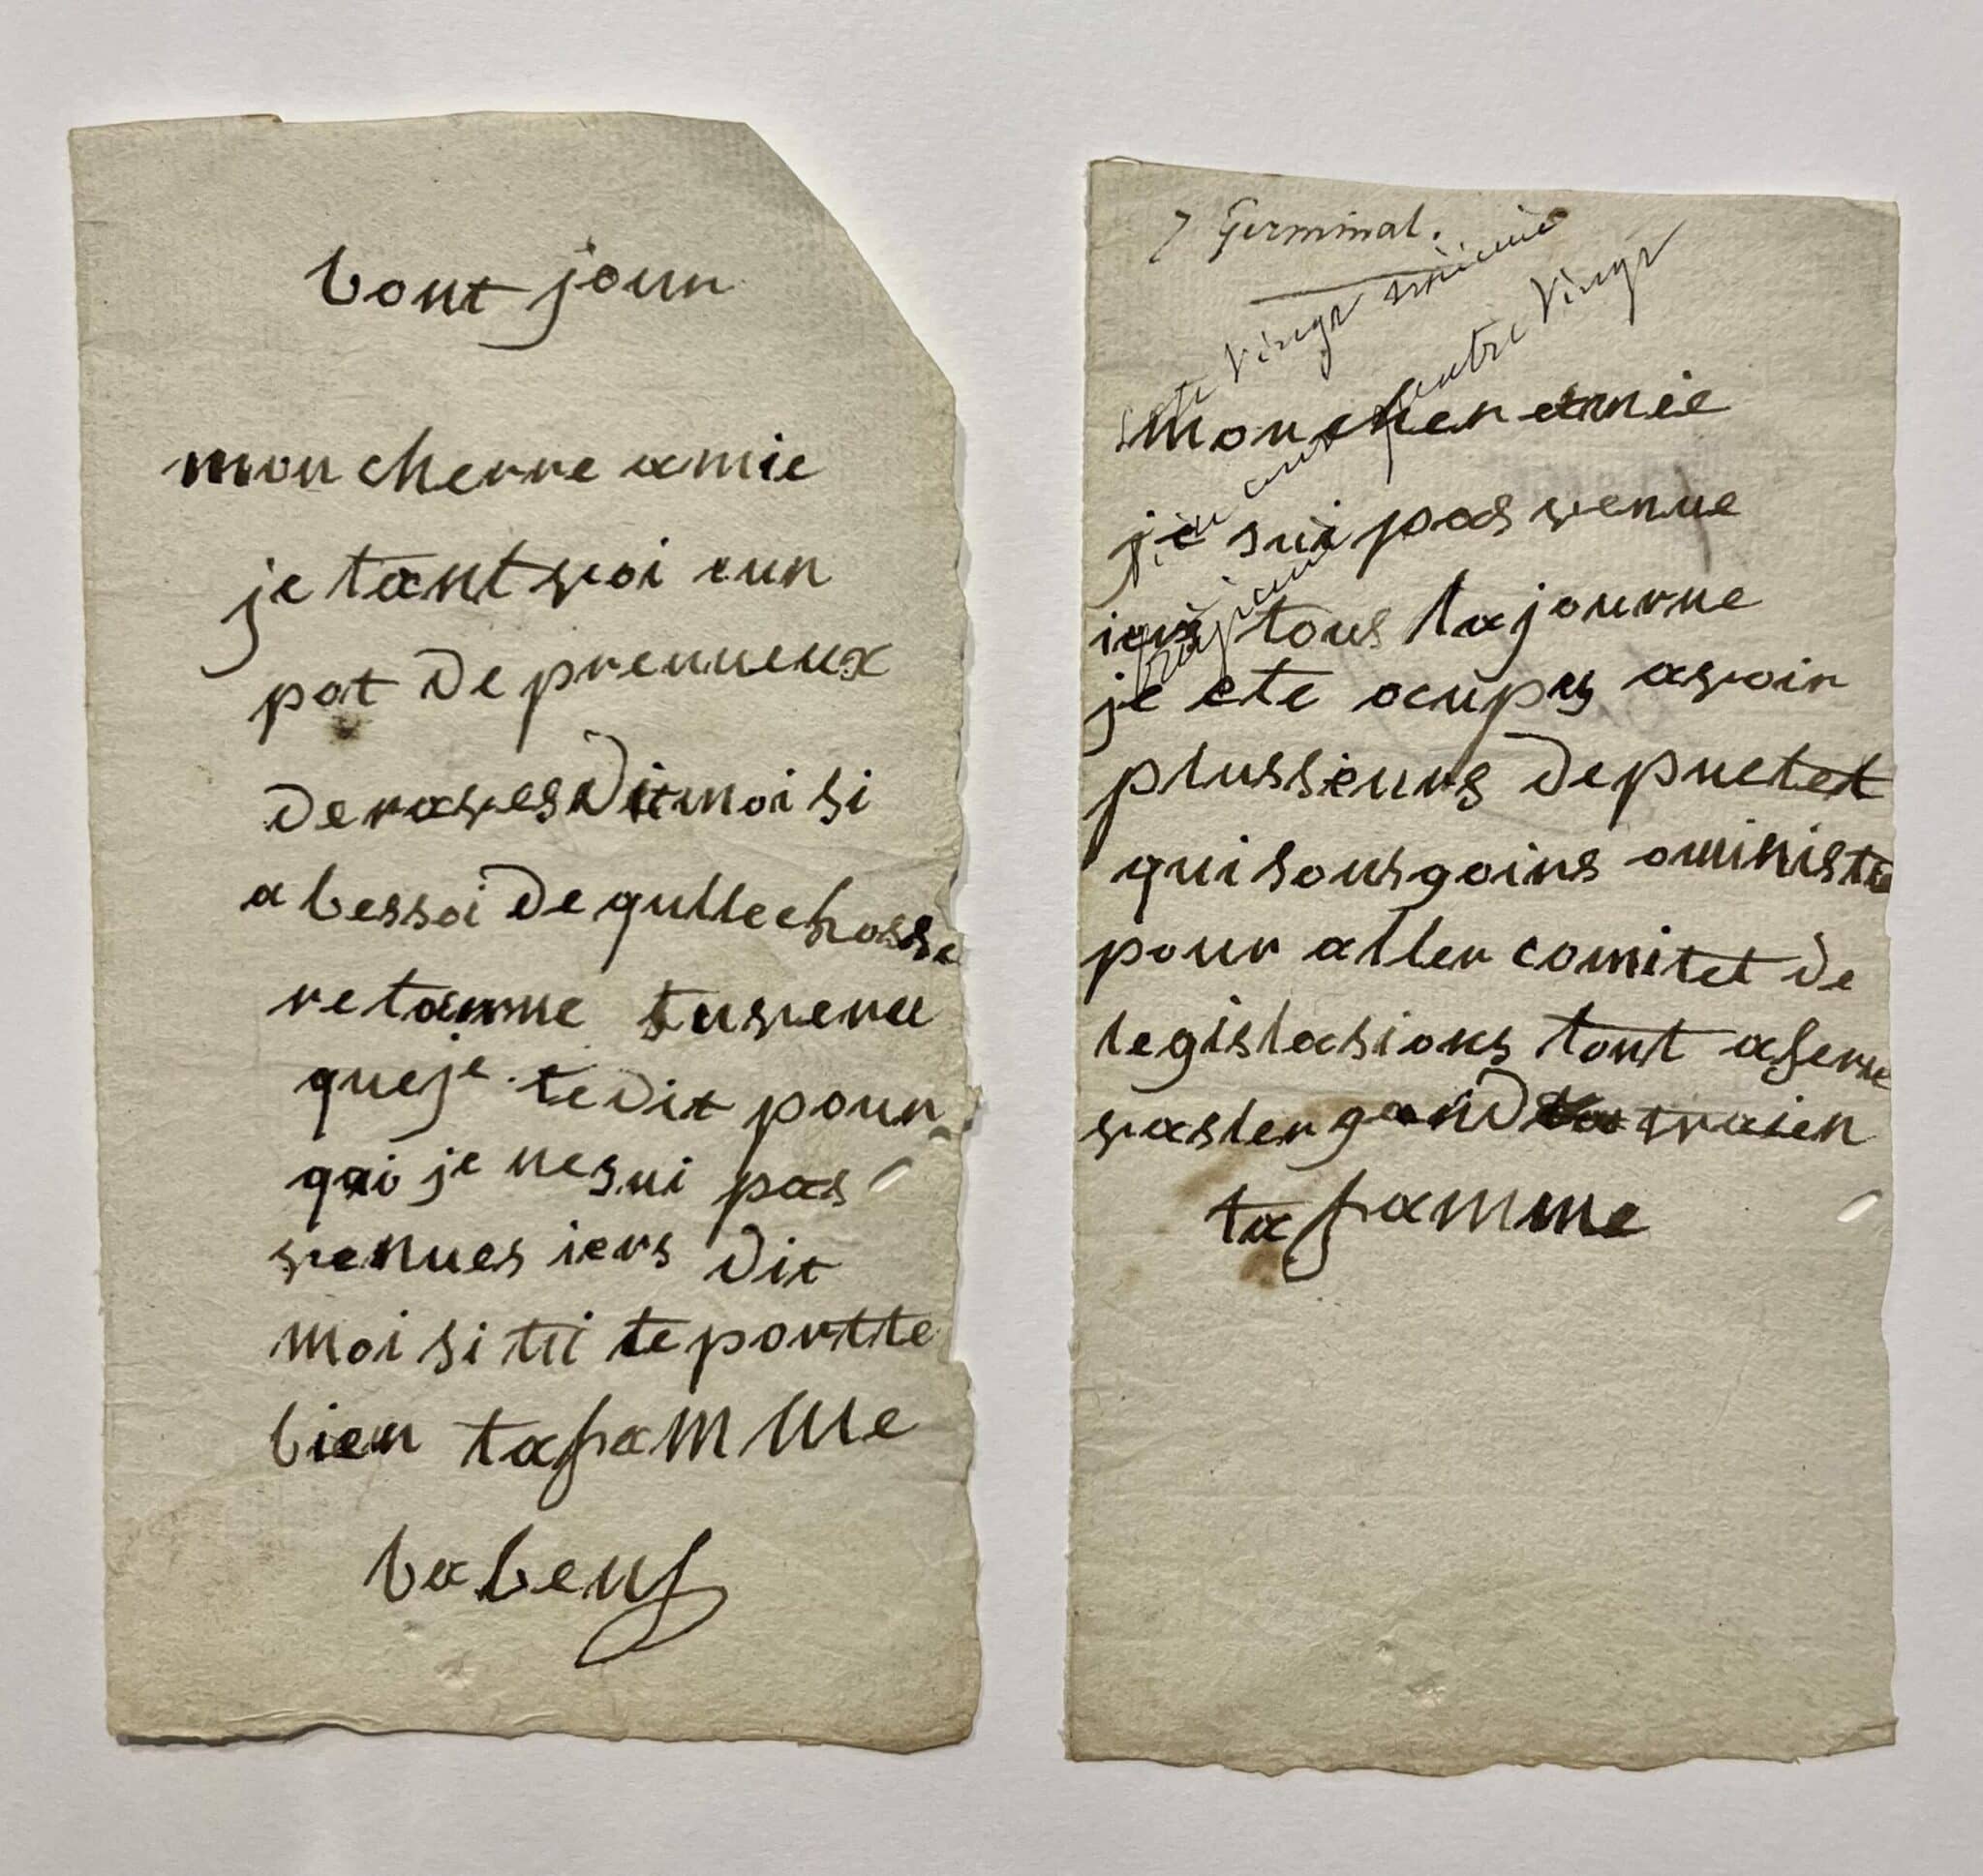 bont jour
mon cherre amie
je tant voi eun
pot de prenueux
de raves dit moi si
a bessoi de qulle chosse
retamme tu vera
que je te dit pour
qui je ne sui pas
venues iers dit
moi si tu te portte
bien ta famme
babeuf
7 Germinal.
Vingt
quatre Vingt
mon cher amie
je sui pas venue
iers tous la journe
je ete ocupes a voir
plussieurs depuetet
qui sous goins o ministe
pour aller comitet de
legislasions tont afere
vasler gand vraien
ta famme